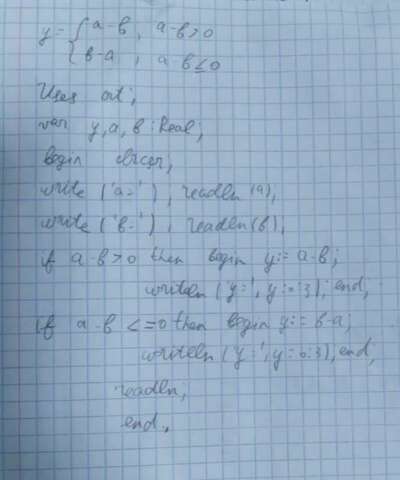 y = { a-в , a-в>0
в-a , a-в≤0
Uses crt;
var y, a, в : Real;
begin clrscr;
write ('a='); readln (a);
write ('в='); readln (в);
if a-в>0 then begin y:= a-в;
writeln ('y=', y:0:3); end;
if a-в <=0 then begin y:= в-a;
writeln ('y=', y:0:3); end;
readln;
end.